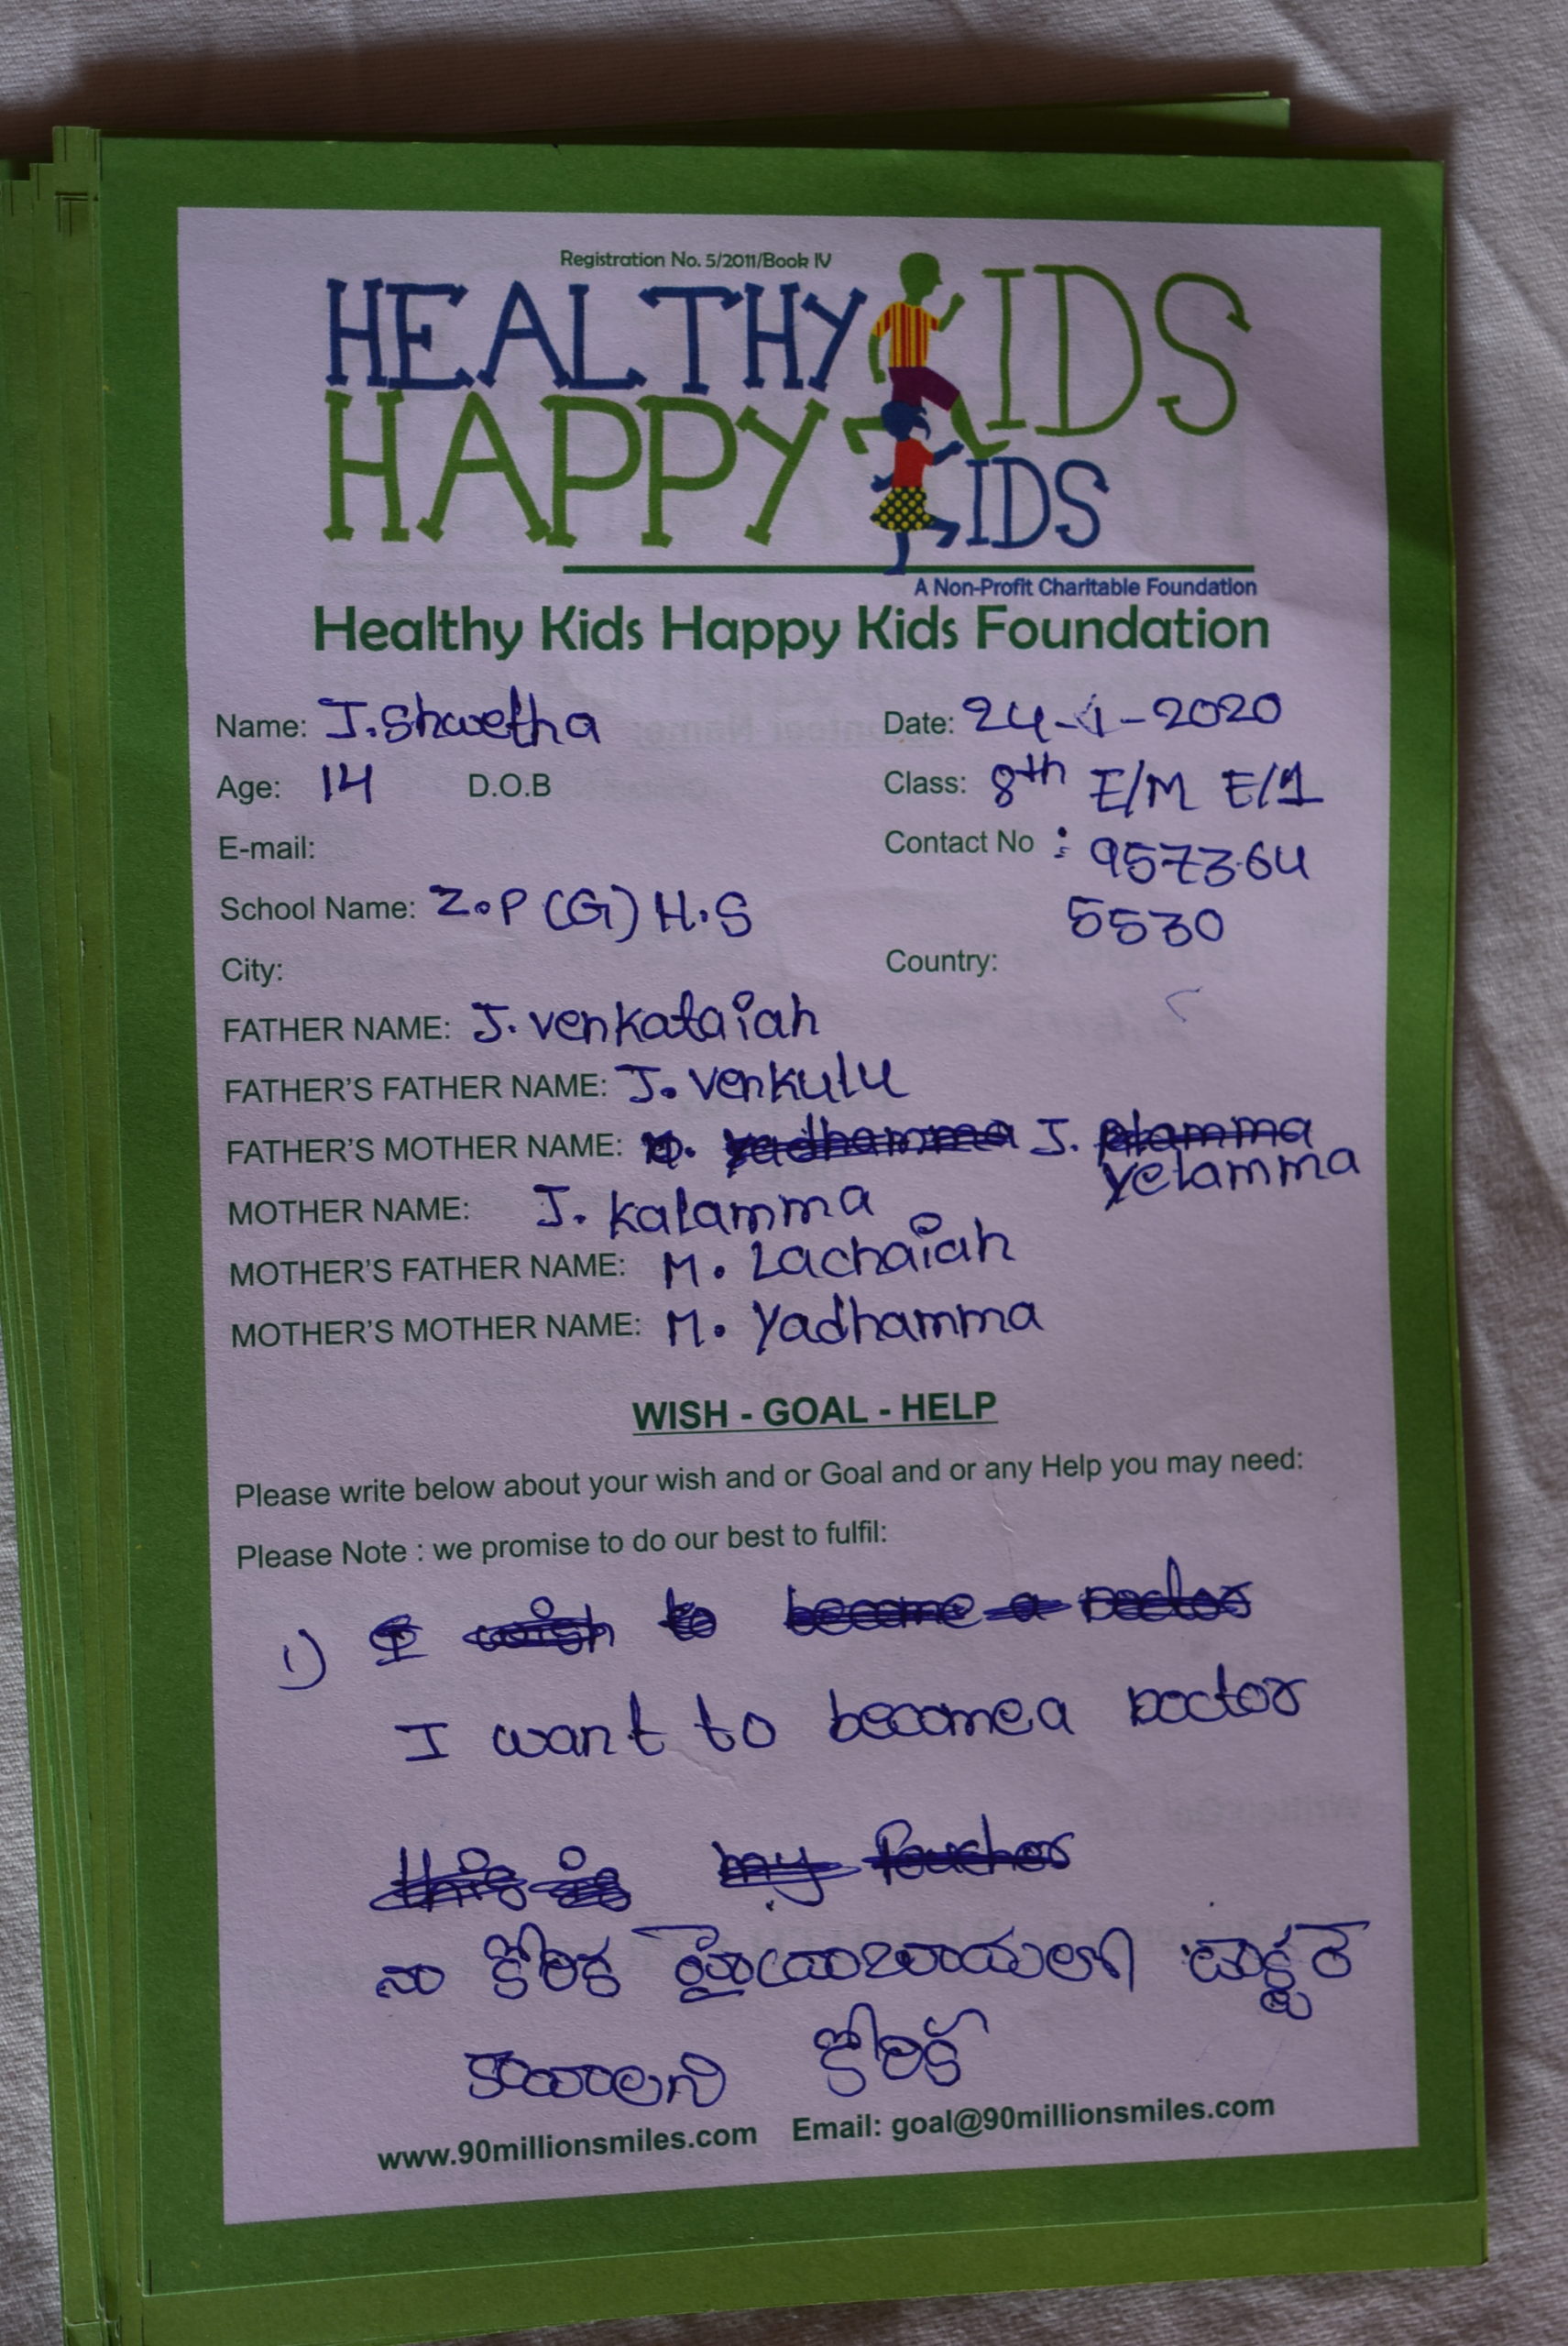 Registration No. 5/2011/Book IV
HEALTHY KIDS
HAPPY KIDS
A Non-Profit Charitable Foundation
Healthy Kids Happy Kids Foundation
Name: J.Shwetha Date: 24-1-2020
Age: 14 D.O.B Class: 8th E/M E/1
E-mail: Contact No : 957364
School Name: Z.P (G) H.S 5530
City: Country:
FATHER NAME: J. venkataiah
FATHER'S FATHER NAME: J. venkulu
FATHER'S MOTHER NAME: yadhamma J. alamma
yelamma
MOTHER NAME: J. kalamma
MOTHER'S FATHER NAME: M. Lachaiah
MOTHER'S MOTHER NAME: M. Yadhamma
WISH - GOAL - HELP
Please write below about your wish and or Goal and or any Help you may need:
Please Note : we promise to do our best to fulfil:
1) I wish to become a Doctor
I want to become a Doctor
this is my
నా కోరిక
కోరిక
www.90millionsmiles.com Email: goal@90millionsmiles.com